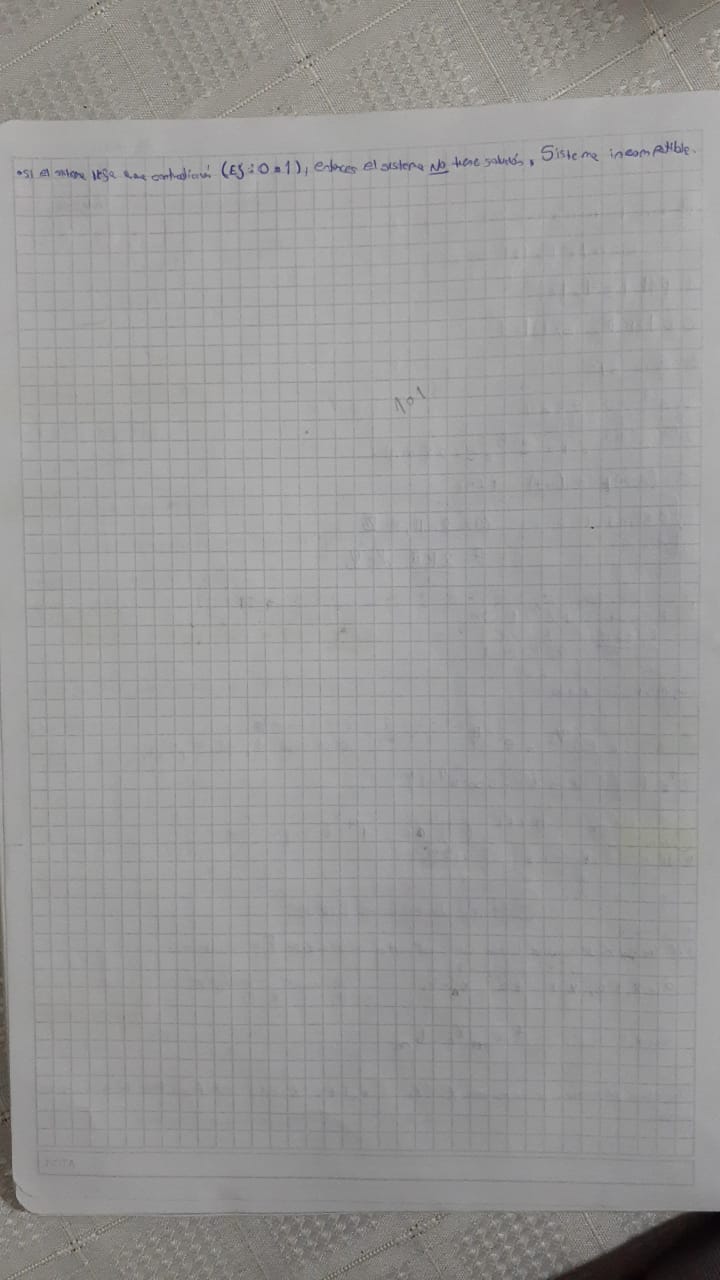 •Si el sistema llega una contradicción (Ej: 0=1), entonces el sistema No tiene solución, Sistema incompatible.
101